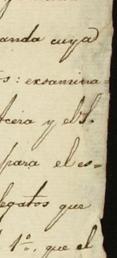 anda cuya
s: exsamina
cera y el S.
para el es-
legatos que
1º, que el